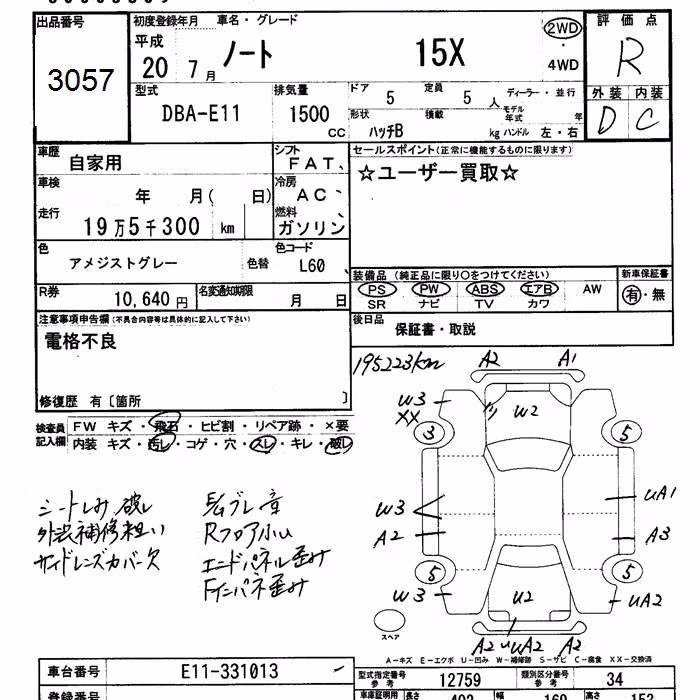 出品番号 初度登録年月 車名・グレード 評価点
3057 平成 20 7月 ノート 15X 2WD ・ 4WD R
型式 排気量 ドア 定員 ディーラー・並行 外装 内装
DBA-E11 1500 cc 5 5 人 モデル年式 年 D C
形状 積載 ハッチB kg ハンドル 左・右
車歴 自家用 シフト FAT、 セールスポイント(正常に機能するものに限ります)
車検 年 月( 日) 冷房 AC、 ☆ユーザー買取☆
走行 19万5千300 km 燃料 ガソリン
色 アメジストグレー 色替 色コード L60
装備品 (純正品に限り○をつけてください) 新車保証書
PS PW ABS エアB AW 有・無
SR ナビ TV カワ
R券 10,640円 名変通知期限 月 日
後日品 保証書・取説
注意事項申告欄(不具合内容等は具体的に記入して下さい)
電格不良
修復歴 有〔箇所 〕
検査員記入欄 FW キズ・飛石・ヒビ割・リペア跡・×要
内装 キズ・汚レ・コゲ・穴・スレ・キレ・破レ
195223km
A2 A1
W3 XX U2
3 5
W3 UA1
A2 A3
5 5
W3 U2 UA2
A2 U UA2 A2
スペア
シートしみ 破レ
外装補修粗い
サイドレンズカバー欠
Rフロア小U
エンドパネル歪み
Fインパネ歪み
A-キズ E-エクボ U-凹み W-補修跡 S-サビ C-腐食 XX-交換済
車台番号 E11-331013 型式指定番号 参考 12759 類別区分番号 参考 34
登録番号 車庫証明用 長さ 402 幅 169 高さ 153